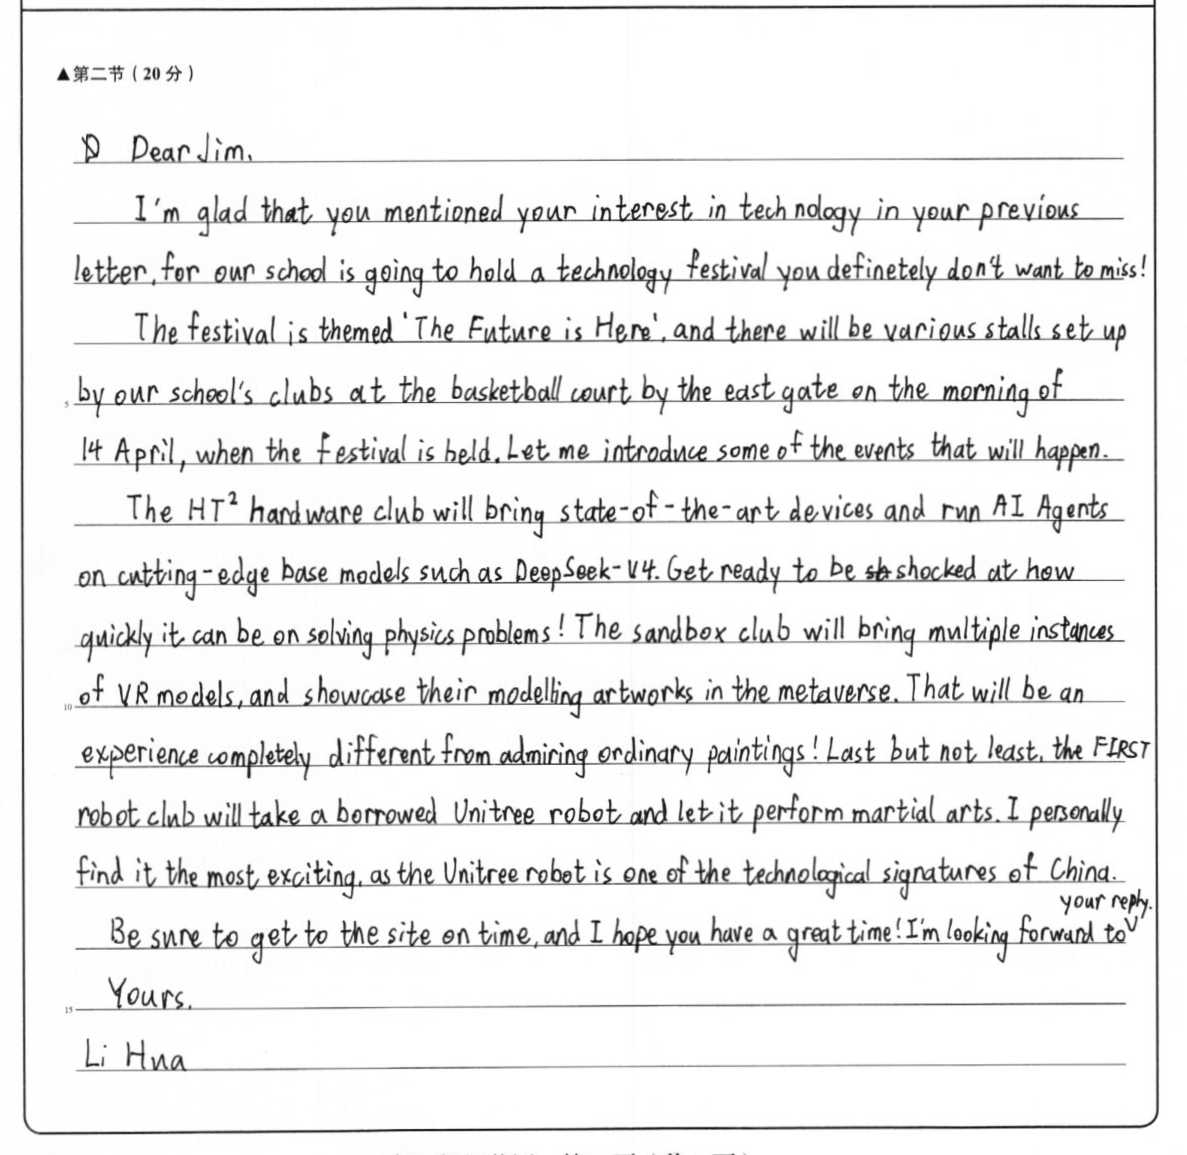 ▲第二节（20分）
Dear Jim,
I'm glad that you mentioned your interest in technology in your previous
letter, for our school is going to hold a technology festival you definetely don't want to miss!
The festival is themed 'The Future is Here', and there will be various stalls set up
5 by our school's clubs at the basketball court by the east gate on the morning of
14 April, when the festival is held. Let me introduce some of the events that will happen.
The HT² hardware club will bring state-of-the-art devices and run AI Agents
on cutting-edge base models such as DeepSeek-V4. Get ready to be shocked at how
quickly it can be on solving physics problems! The sandbox club will bring multiple instances
10 of VR models, and showcase their modelling artworks in the metaverse. That will be an
experience completely different from admiring ordinary paintings! Last but not least, the FIRST
robot club will take a borrowed Unitree robot and let it perform martial arts. I personally
find it the most exciting, as the Unitree robot is one of the technological signatures of China.
Be sure to get to the site on time, and I hope you have a great time! I'm looking forward to your reply.
15 Yours,
Li Hua